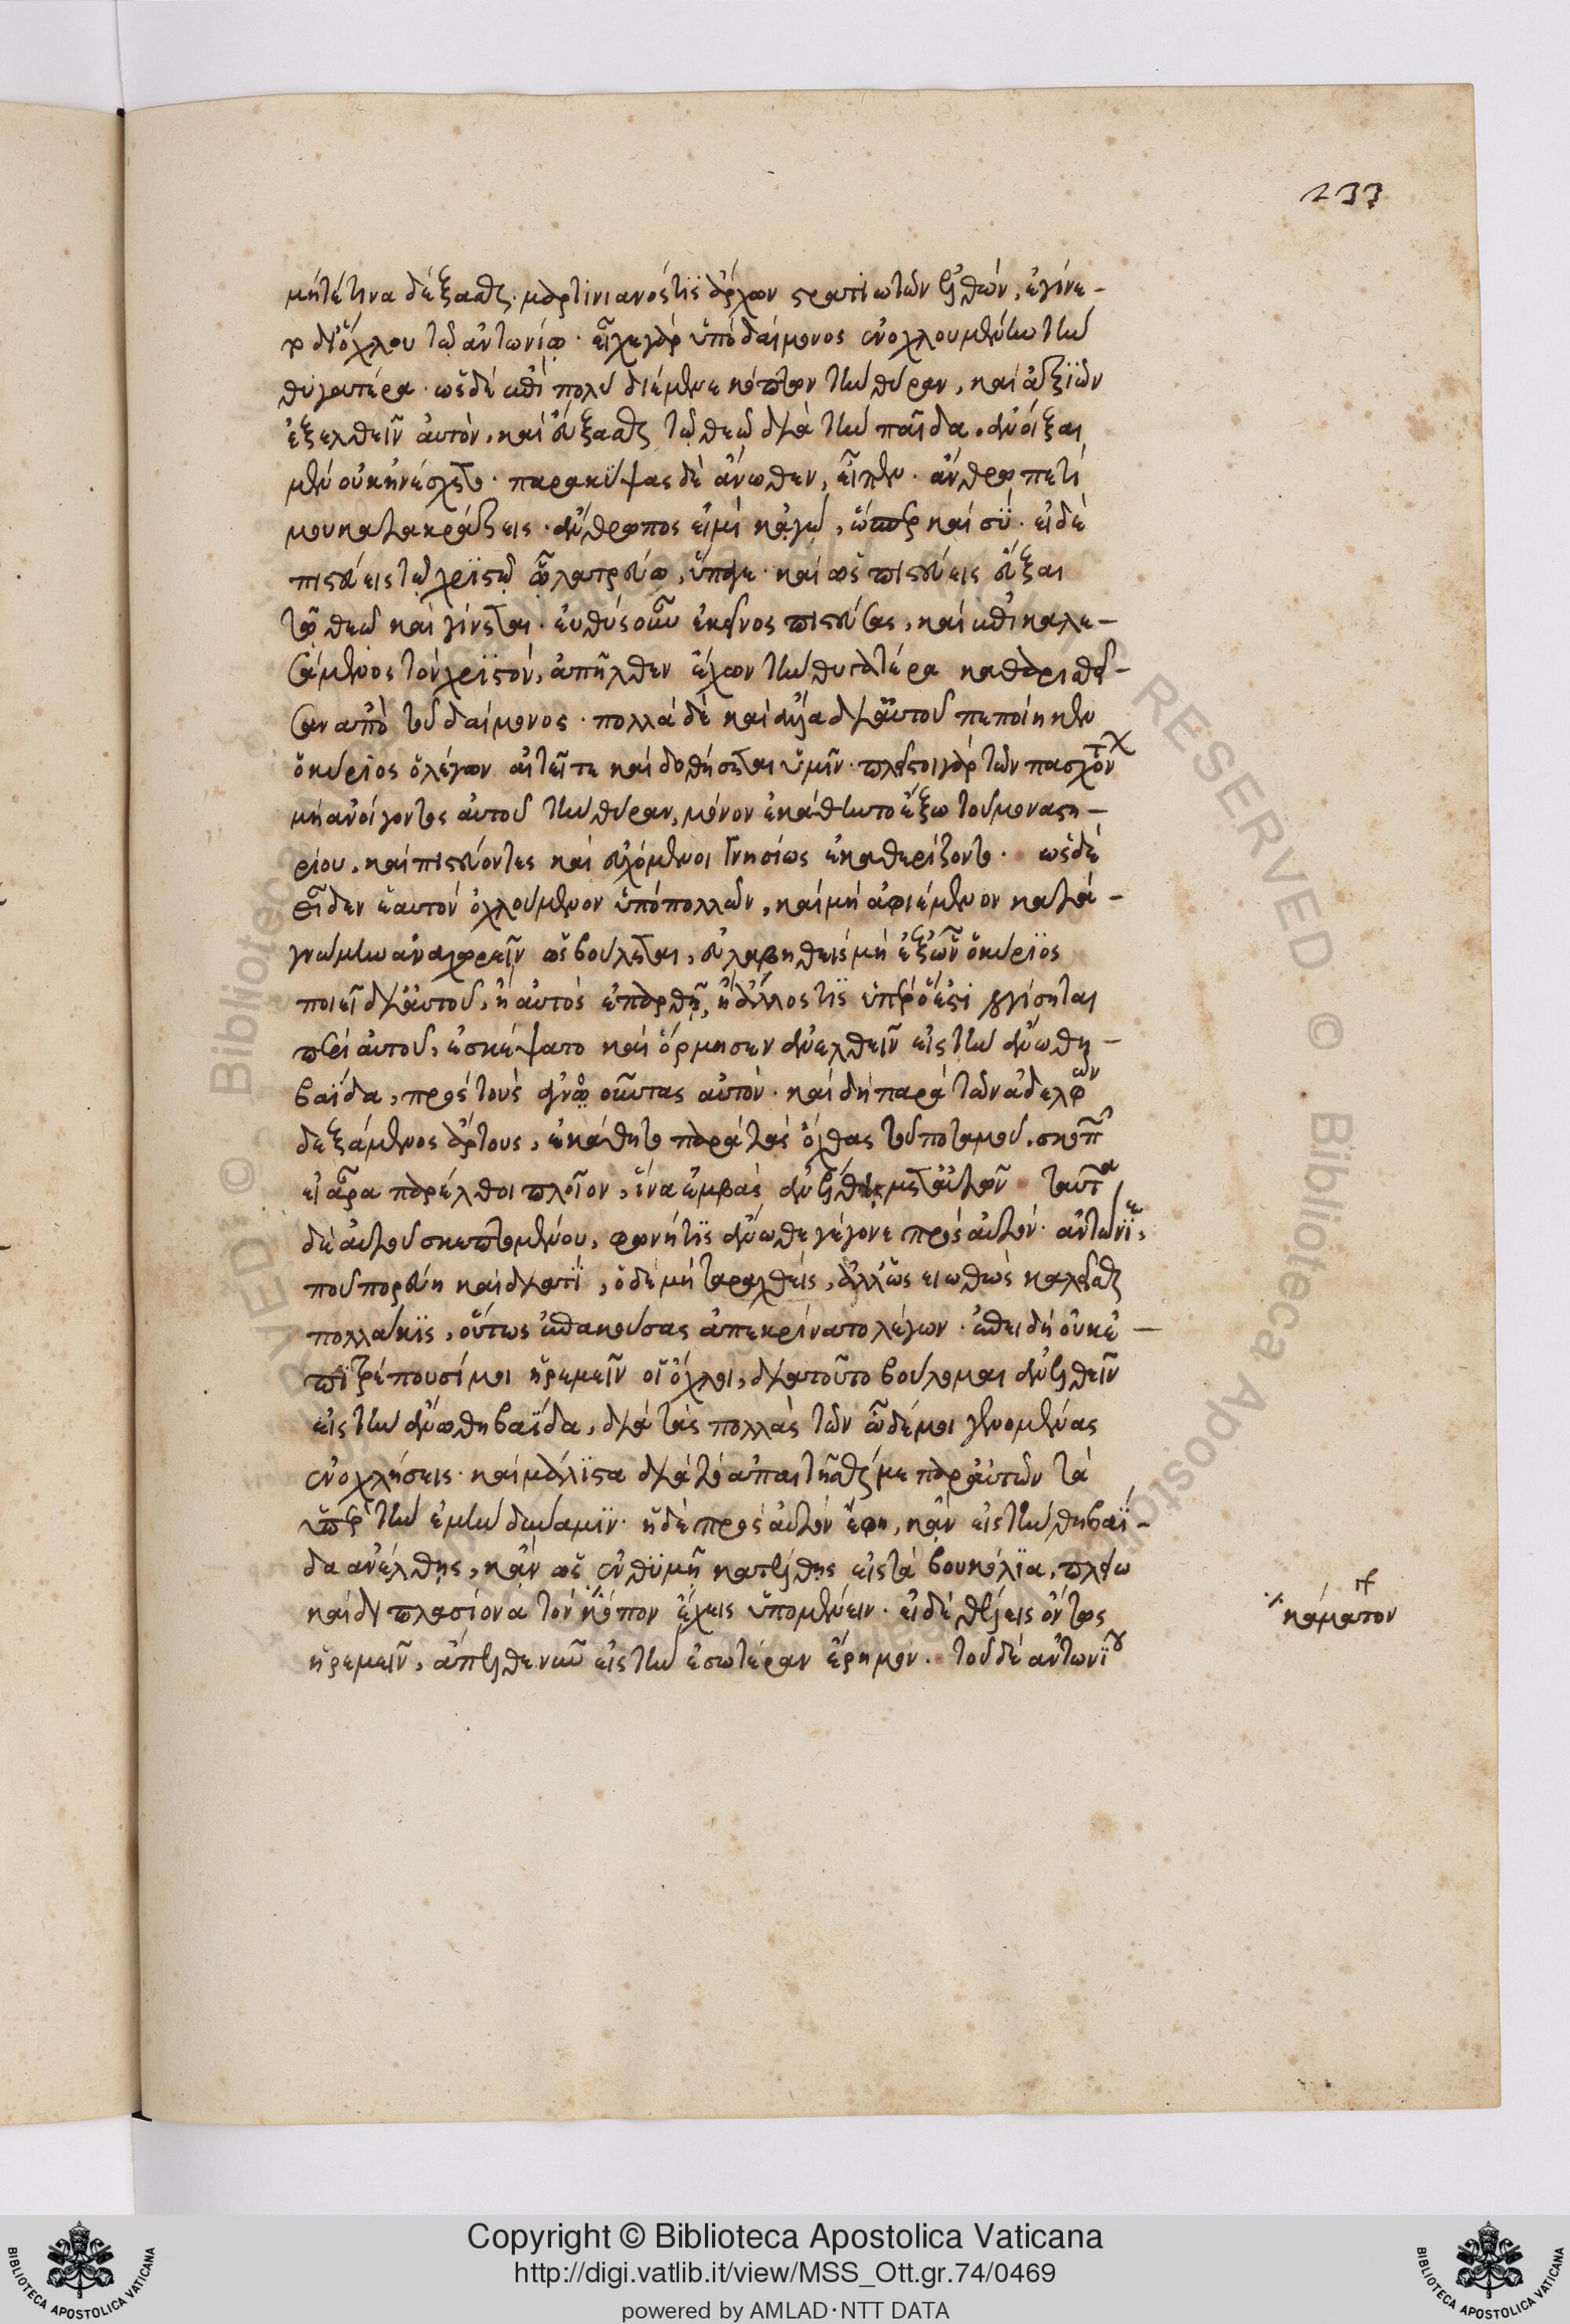 233
μήτέ τινα δέξασθαι· μαρτινιανός τῒς ἄρχων στρατιωτῶν ἐλθών, ἐγίνε-
το δι' ὄχλου τῷ ἀντωνίῳ· εἶχε γὰρ ὑπὸ δαίμονος ἐνοχλουμένην τὴν
θυγατέρα· ὡς δὲ ἐπὶ πολὺ διέμενε κόπτων τὴν θύραν, καὶ ἀξϊῶν
ἐξελθεῖν αὐτόν, καὶ εὔξασθαι τῷ θεῷ διὰ τὴν παῖδα, ἀνοῖξαι
μὲν οὐκ ἠνέσχετο· παρακύψας δὲ ἄνωθεν, εἶπεν· ἄνθρωπε τί
μου κατακράζεις· ἄνθρωπος εἰμὶ κᾀγώ, ὥσπερ καὶ σϋ· εἰ δὲ
πιστεύεις τῷ χρϊστῷ ᾧ λατρεύω, ὕπαγε· καὶ ὡς πιστεύεις εὖξαι
τῷ θεῷ καὶ γίνεται· εὐθὺς οὖν ἐκεῖνος πιστεύσας, καὶ ἐπικαλε-
σάμενος τὸν χρϊστόν, ἀπῆλθεν ἔχων τὴν θυγατέρα καθαρισθεῖ-
σαν ἀπὸ τοῦ δαίμονος· πολλὰ δὲ καὶ ἄλλα δι' αὐτοῦ πεποίηκεν
ὁ κύριος ὁ λέγων αἰτεῖτε καὶ δοθήσεται ὑμῖν· πλεῖστοι γὰρ τῶν πασχόντ
μὴ ἀνοίγοντος αὐτοῦ τὴν θύραν, μόνον ἐκάθηντο ἔξω τοῦ μοναστη-
ρίου, καὶ πιστεύοντες καὶ εὐχόμενοι γνησίως ἐκαθερίζοντο· ὡς δὲ
εἶδεν ἑαυτὸν ὀχλούμενον ὑπὸ πολλῶν, καὶ μὴ ἀφιέμενον κατὰ-
γνώμην ἀναχωρεῖν ὡς βούλεται, εὐλαβηθεὶς μὴ ἐξ ὧν ὁ κύρϊος
ποιεῖ δι' αὐτοῦ, ἢ αὐτὸς ἐπαρθῇ, ἢ ἄλλος τῒς ὑπὲρ ὅ ἐστι λογίσηται
περὶ αὐτοῦ, ἐσκέψατο καὶ ὥρμησεν ἀνελθεῖν εἰς τὴν ἄνω θη-
βαΐδα, πρὸς τοὺς ἀγνοοῦντας αὐτόν· καὶ δὴ παρὰ τῶν ἀδελφῶν
δεξάμενος ἄρτους, ἐκάθητο παρὰ τὰς ὄχθας τοῦ ποταμοῦ, σκοπῶν
εἰ ἄρα παρέλθοι πλοῖον, ἵνα ἐμβὰς ἀνέλθῃ μετ' αὐτῶν· ταῦτα
δὲ αὐτοῦ σκεπτομένου, φωνή τϊς ἄνωθε γέγονε πρὸς αὐτόν· ἀντώνϊε,
ποῦ πορεύῃ καὶ διατϊ, ὁ δὲ μὴ ταραχθείς, ἀλλ' ὡς εἰωθὼς καλεῖσθαι
πολλάκϊς, οὕτως ἐπακούσας ἀπεκρίνατο λέγων· ἐπειδὴ οὐκ ἐ-
πϊτρέπουσί μοι ἠρεμεῖν οἱ ὄχλοι, διατοῦτο βούλομαι ἀνελθεῖν
εἰς τὴν ἄνω θηβαΐδα, διὰ τὰς πολλὰς τῶν ὧδέ μοι γενομένας
ἐνοχλήσεις· καὶ μάλϊστα διὰ τὸ ἀπαιτεῖσθαί με παρ' αὐτῶν τὰ
ὑπὲρ τὴν ἐμὴν δύναμϊν· ἡ δὲ πρὸς αὐτὸν ἔφη, κἂν εἰς τὴν θηβαΐ-
δα ἀνέλθῃς, κἂν ὡς ἐνθϋμῇ κατέλθῃς εἰς τὰ βουκόλϊα, πλείω
καὶ διπλασίονα τὸν κόπον ἔχεις ὑπομένειν· εἰ δὲ θέλεις ὄντως
ἠρεμεῖν, ἄπελθε νῦν εἰς τὴν ἐσωτέραν ἔρημον· τοῦ δὲ ἀντωνϊου
κάματον
Copyright © Biblioteca Apostolica Vaticana
http://digi.vatlib.it/view/MSS_Ott.gr.74/0469
powered by AMLAD·NTT DATA